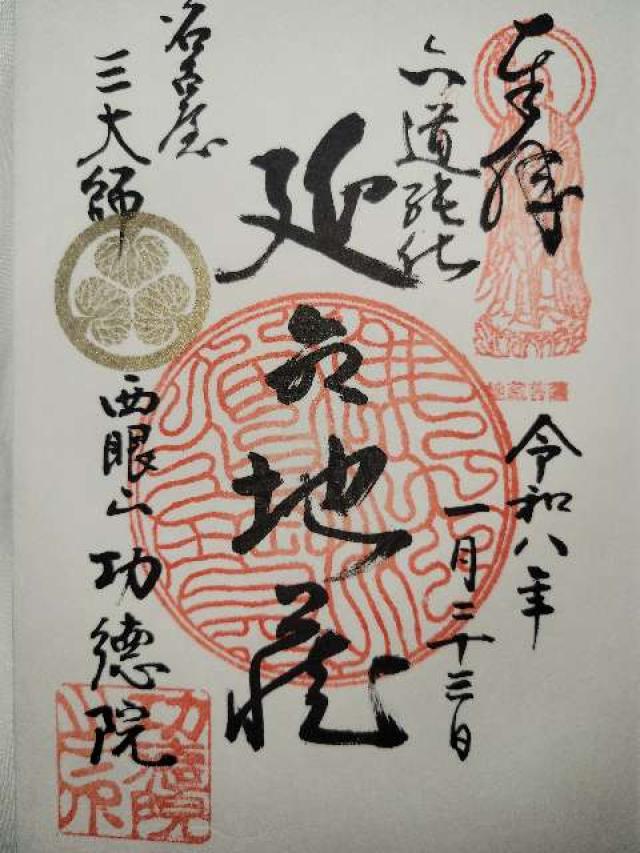 奉拝
地蔵菩薩
令和八年
一月二十三日
六道能化
延命地蔵
名古屋
三大師
西眼山 功徳院
功徳院
之印